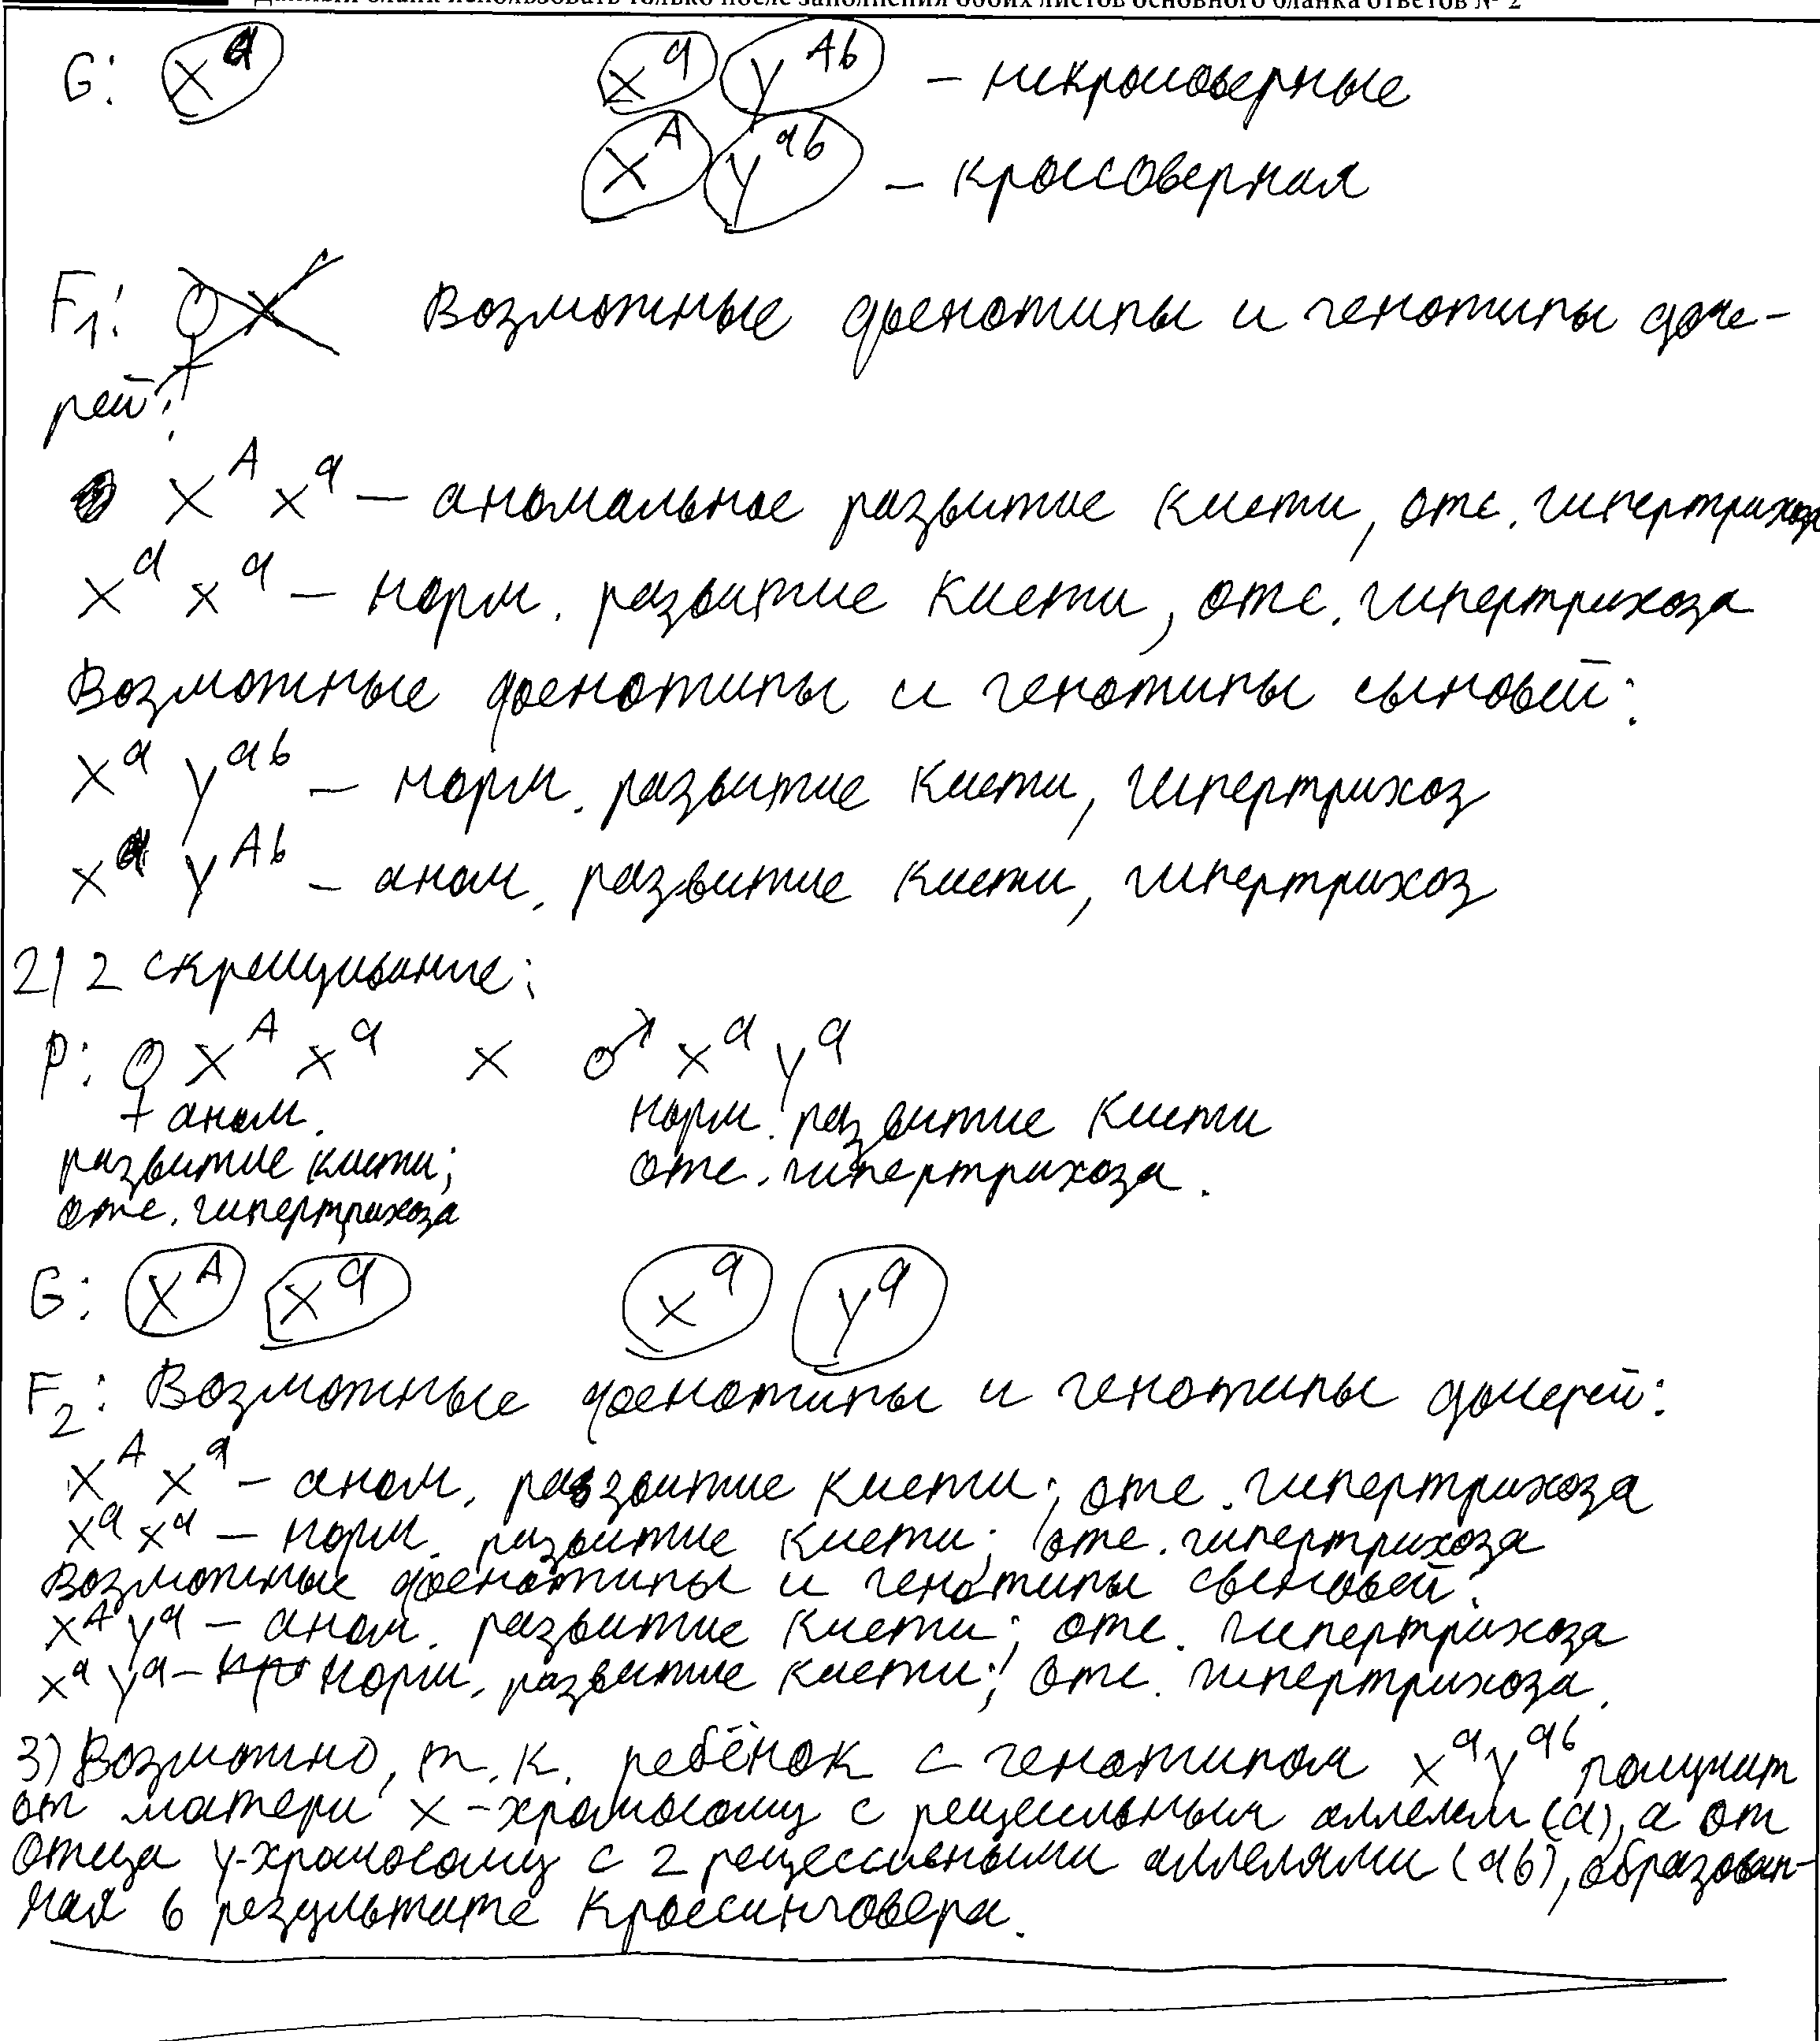 Данный бланк использовать только после заполнения обоих листов основного бланка ответов № 2
G: Xᵃ Xᵃ Yᴬᵇ – некроссоверные
Xᴬ Yᵃᵇ – кроссоверная
F₁: ♀ X Возможные фенотипы и генотипы доче-
рей:
Xᴬ Xᵃ – аномальное развитие кисти, отс. гипертрихоза
Xᵃ Xᵃ – норм. развитие кисти, отс. гипертрихоза
Возможные фенотипы и генотипы сыновей:
Xᵃ Yᵃᵇ – норм. развитие кисти, гипертрихоз
Xᵃ Yᴬᵇ – аном. развитие кисти, гипертрихоз
2) 2 скрещивание:
P: ♀ Xᴬ Xᵃ x ♂ Xᵃ Yᵃ
аном. норм. развитие кисти
развитие кисти; отс. гипертрихоза.
отс. гипертрихоза
G: Xᴬ Xᵃ Xᵃ Yᵃ
F₂: Возможные фенотипы и генотипы дочерей:
Xᴬ Xᵃ – аном. развитие кисти; отс. гипертрихоза
Xᵃ Xᵃ – норм. развитие кисти; отс. гипертрихоза
Возможные фенотипы и генотипы сыновей:
Xᴬ Yᵃ – аном. развитие кисти; отс. гипертрихоза
Xᵃ Yᵃ – норм. развитие кисти; отс. гипертрихоза.
3) Возможно, т.к. ребёнок с генотипом XᵃYᵃᵇ получит
от матери X-хромосому с рецессивным аллелем (a), а от
отца Y-хромосому с 2 рецессивными аллелями (ab), образован-
ная в результате кроссинговера.